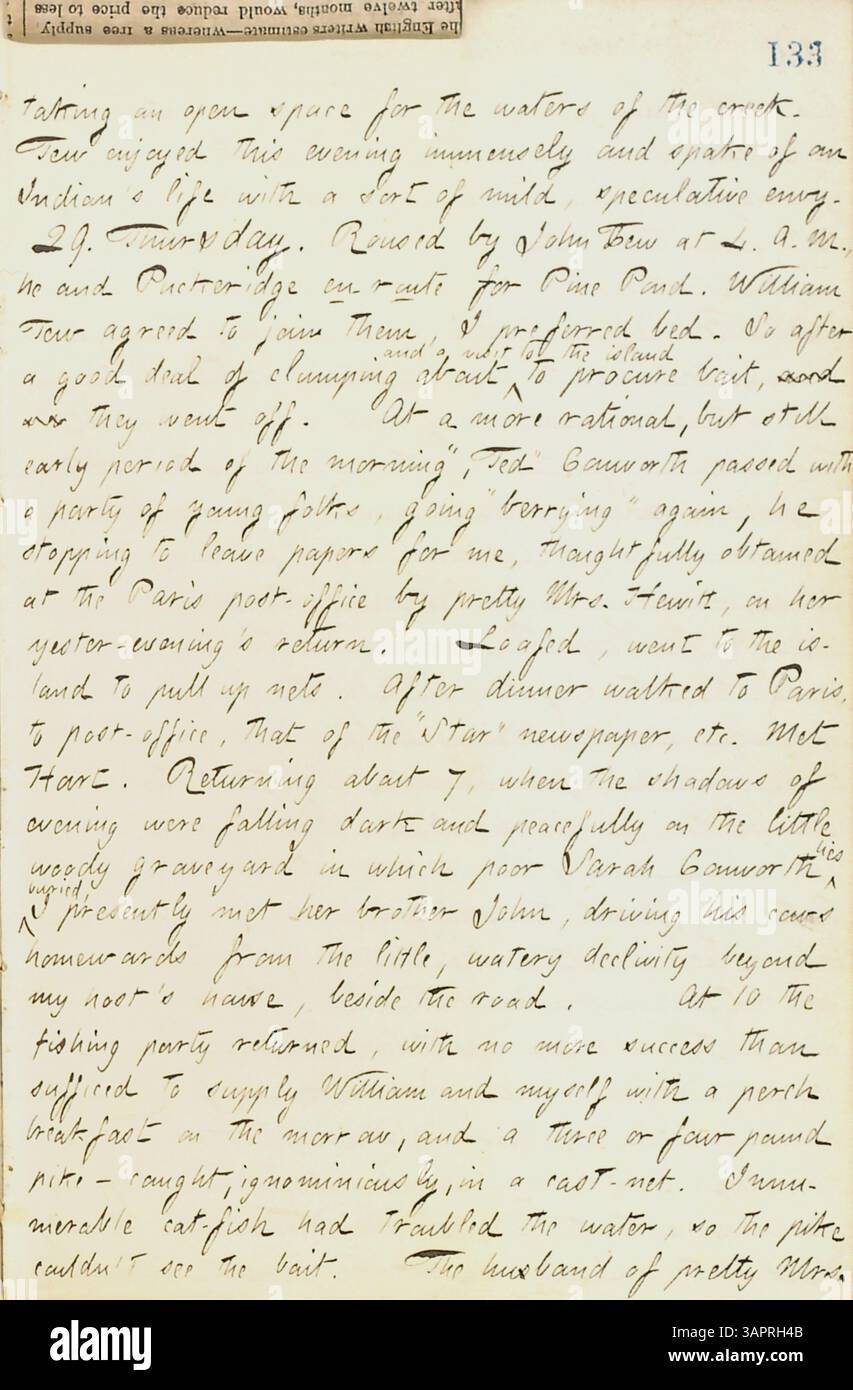 he English writers estimate—whereas a free supply,
after twelve months, would reduce the price to less
133
taking an open space for the waters of the creek.
Tew enjoyed this evening immensely and spake of an
Indian's life with a sort of mild, speculative envy.
29. Thursday. Roused by John Tew at 4. A.M.,
he and Puckeridge en-route for Pine Pond. William
Tew agreed to join them, I preferred bed. So after
and a visit to the island
a good deal of clumping about, ^ to procure bait, and
they went off. At a more rational, but still
early period of the morning", "Ted" Conworth passed with
a party of young folks, going "berrying" again, he
stopping to leave papers for me, thoughtfully obtained
at the Paris post-office by pretty Mrs. Hewitt, on her
yester-evening's return. Loafed, went to the is-
land to pull up nets. After dinner walked to Paris,
to post-office, that of the "Star" newspaper, etc. Met
Hart. Returning about 7, when the shadows of
evening were falling dark and peacefully on the little
woody graveyard in which poor Sarah Conworth ^ lies
buried,
^ I presently met her brother John, driving his cows
homewards from the little, watery declivity beyond
my host's house, beside the road. At 10 the
fishing party returned, with no more success than
sufficed to supply William and myself with a perch
breakfast on the morrow, and a three or four pound
pike — caught, ignominiously, in a cast-net. Innu-
merable cat-fish had troubled the water, so the pike
couldn't see the bait. The husband of pretty Mrs.
alamy
Image ID: 3APRH4B
www.alamy.com